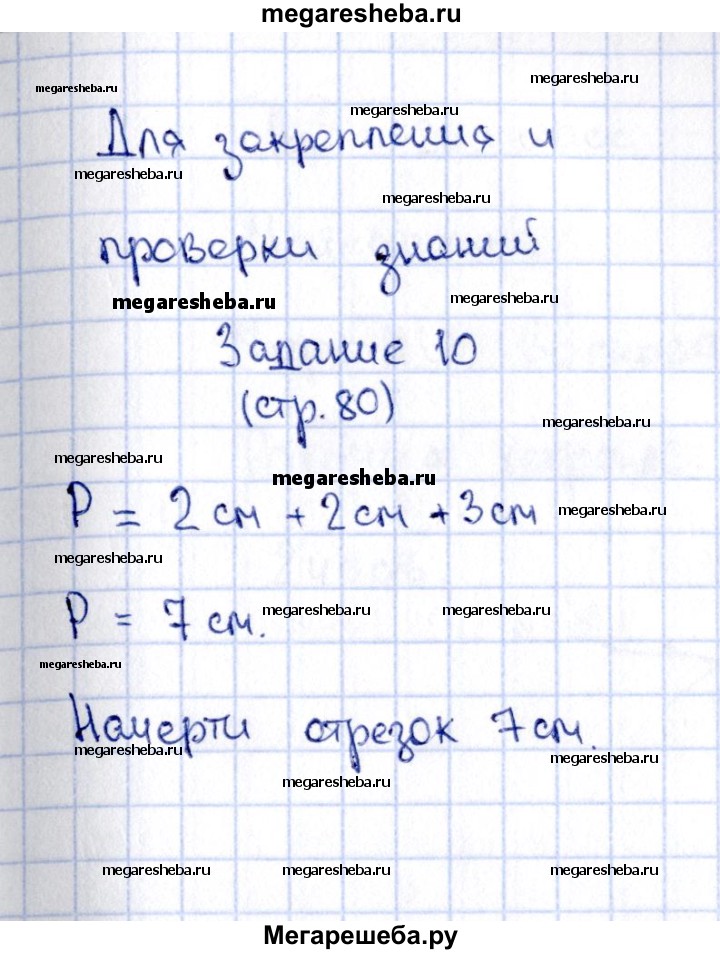 megaresheba.ru
megaresheba.ru
megaresheba.ru
megaresheba.ru
Для закрепления и
megaresheba.ru
megaresheba.ru
проверки знаний
megaresheba.ru
megaresheba.ru
Задание 10
(стр. 80)
megaresheba.ru
megaresheba.ru
megaresheba.ru
P = 2 см + 2 см + 3 см
megaresheba.ru
megaresheba.ru
P = 7 см.
megaresheba.ru
megaresheba.ru
megaresheba.ru
Начерти отрезок 7 см.
megaresheba.ru
megaresheba.ru
megaresheba.ru
megaresheba.ru
megaresheba.ru
megaresheba.ru
Мегарешеба.ру